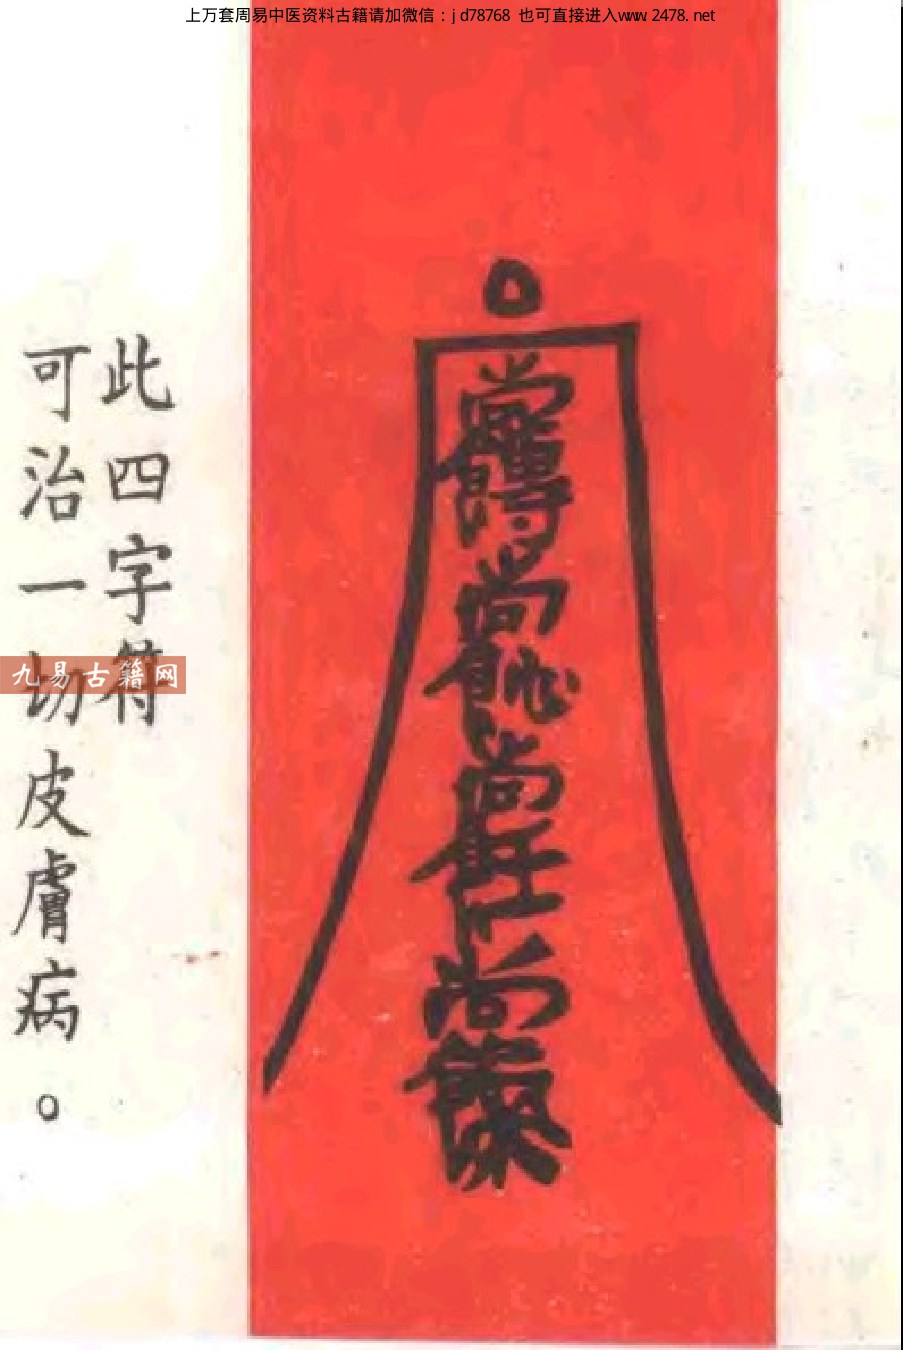 上万套周易中医资料古籍请加微信：jd78768 也可直接进入www.2478.net
此四字符
可治一切皮膚病。
九易古籍网